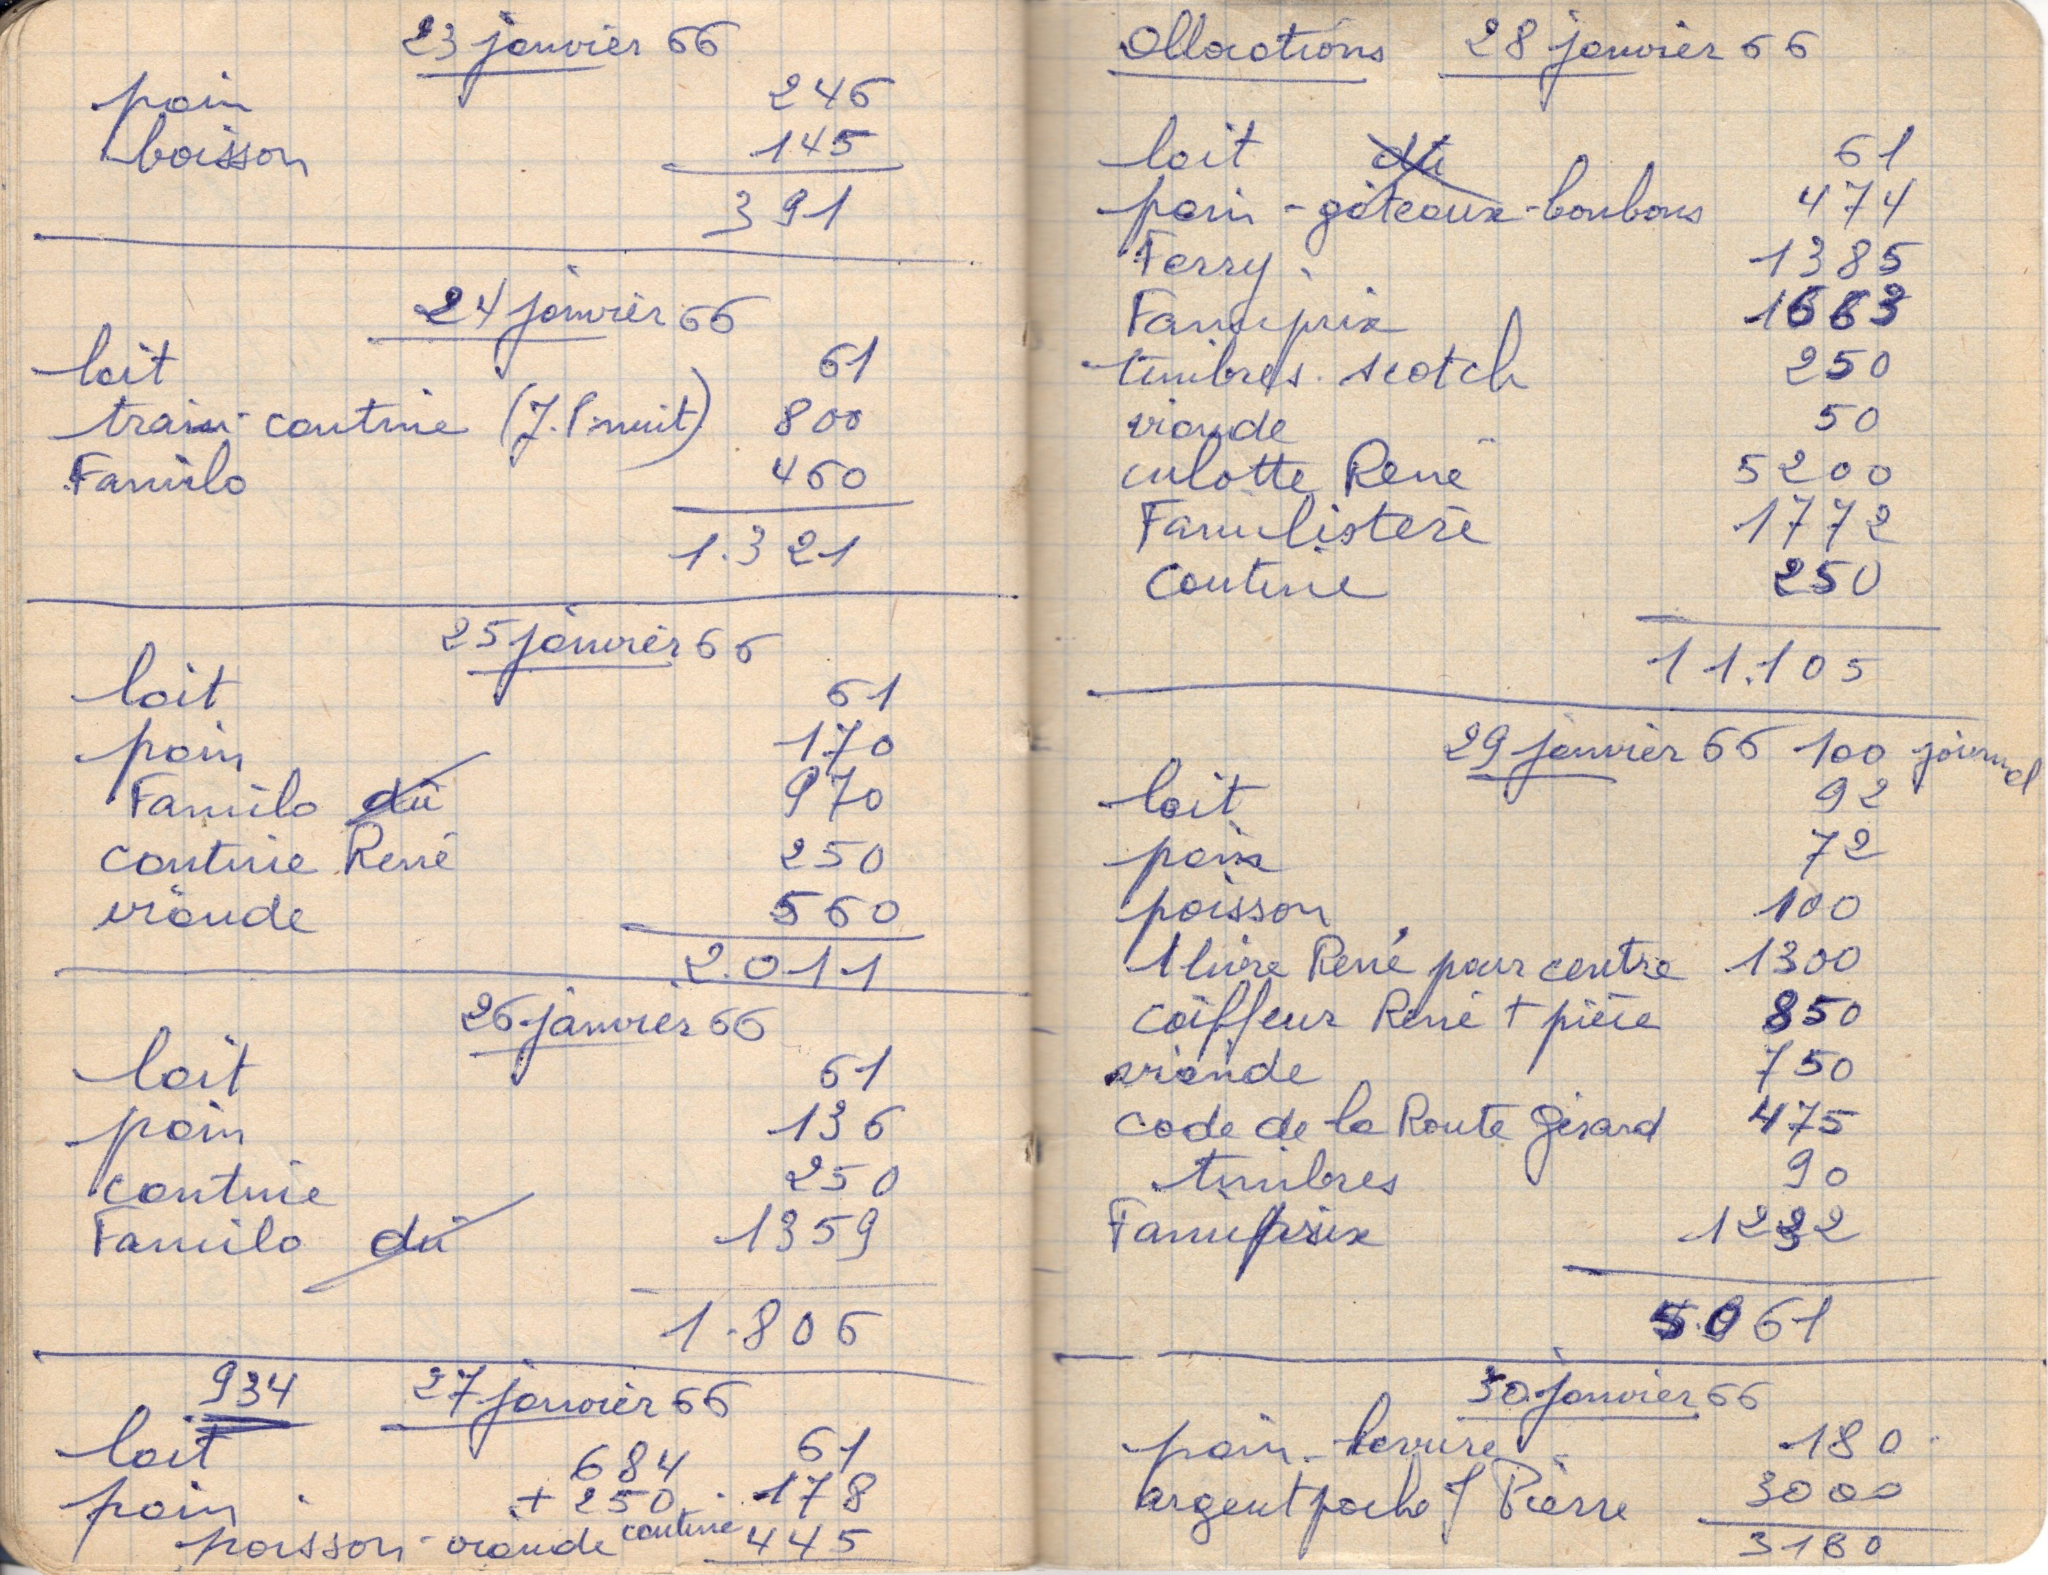 23 janvier 66
pain 246
boisson 145
391
24 janvier 66
lait 61
train-cantine (J.P. nuit) 800
Familo 460
1.321
25 janvier 66
lait 61
pain 170
Familo dû 970
cantine René 250
viande 560
2.011
26 janvier 66
lait 61
pain 136
cantine 250
Familo dû 1359
1.806
934 27 janvier 66
lait 684 61
pain + 250 178
poisson-viande cantine 445
Allocations 28 janvier 66
lait dû 61
pain - gâteaux - bonbons 474
Ferry. 1385
Famiprix 1663
timbres. scotch 250
viande 50
culotte René 5200
Familistère 1772
cantine 250
11.105
29 janvier 66 100 journal
lait 92
pain 72
poisson 100
1 livre René pour centre 1300
coiffeur René + pièce 850
viande 750
code de la Route Gérard 475
timbres 90
Famiprix 1232
5.061
30 janvier 66
pain - levure 180
argent poche J Pierre 3000
3180